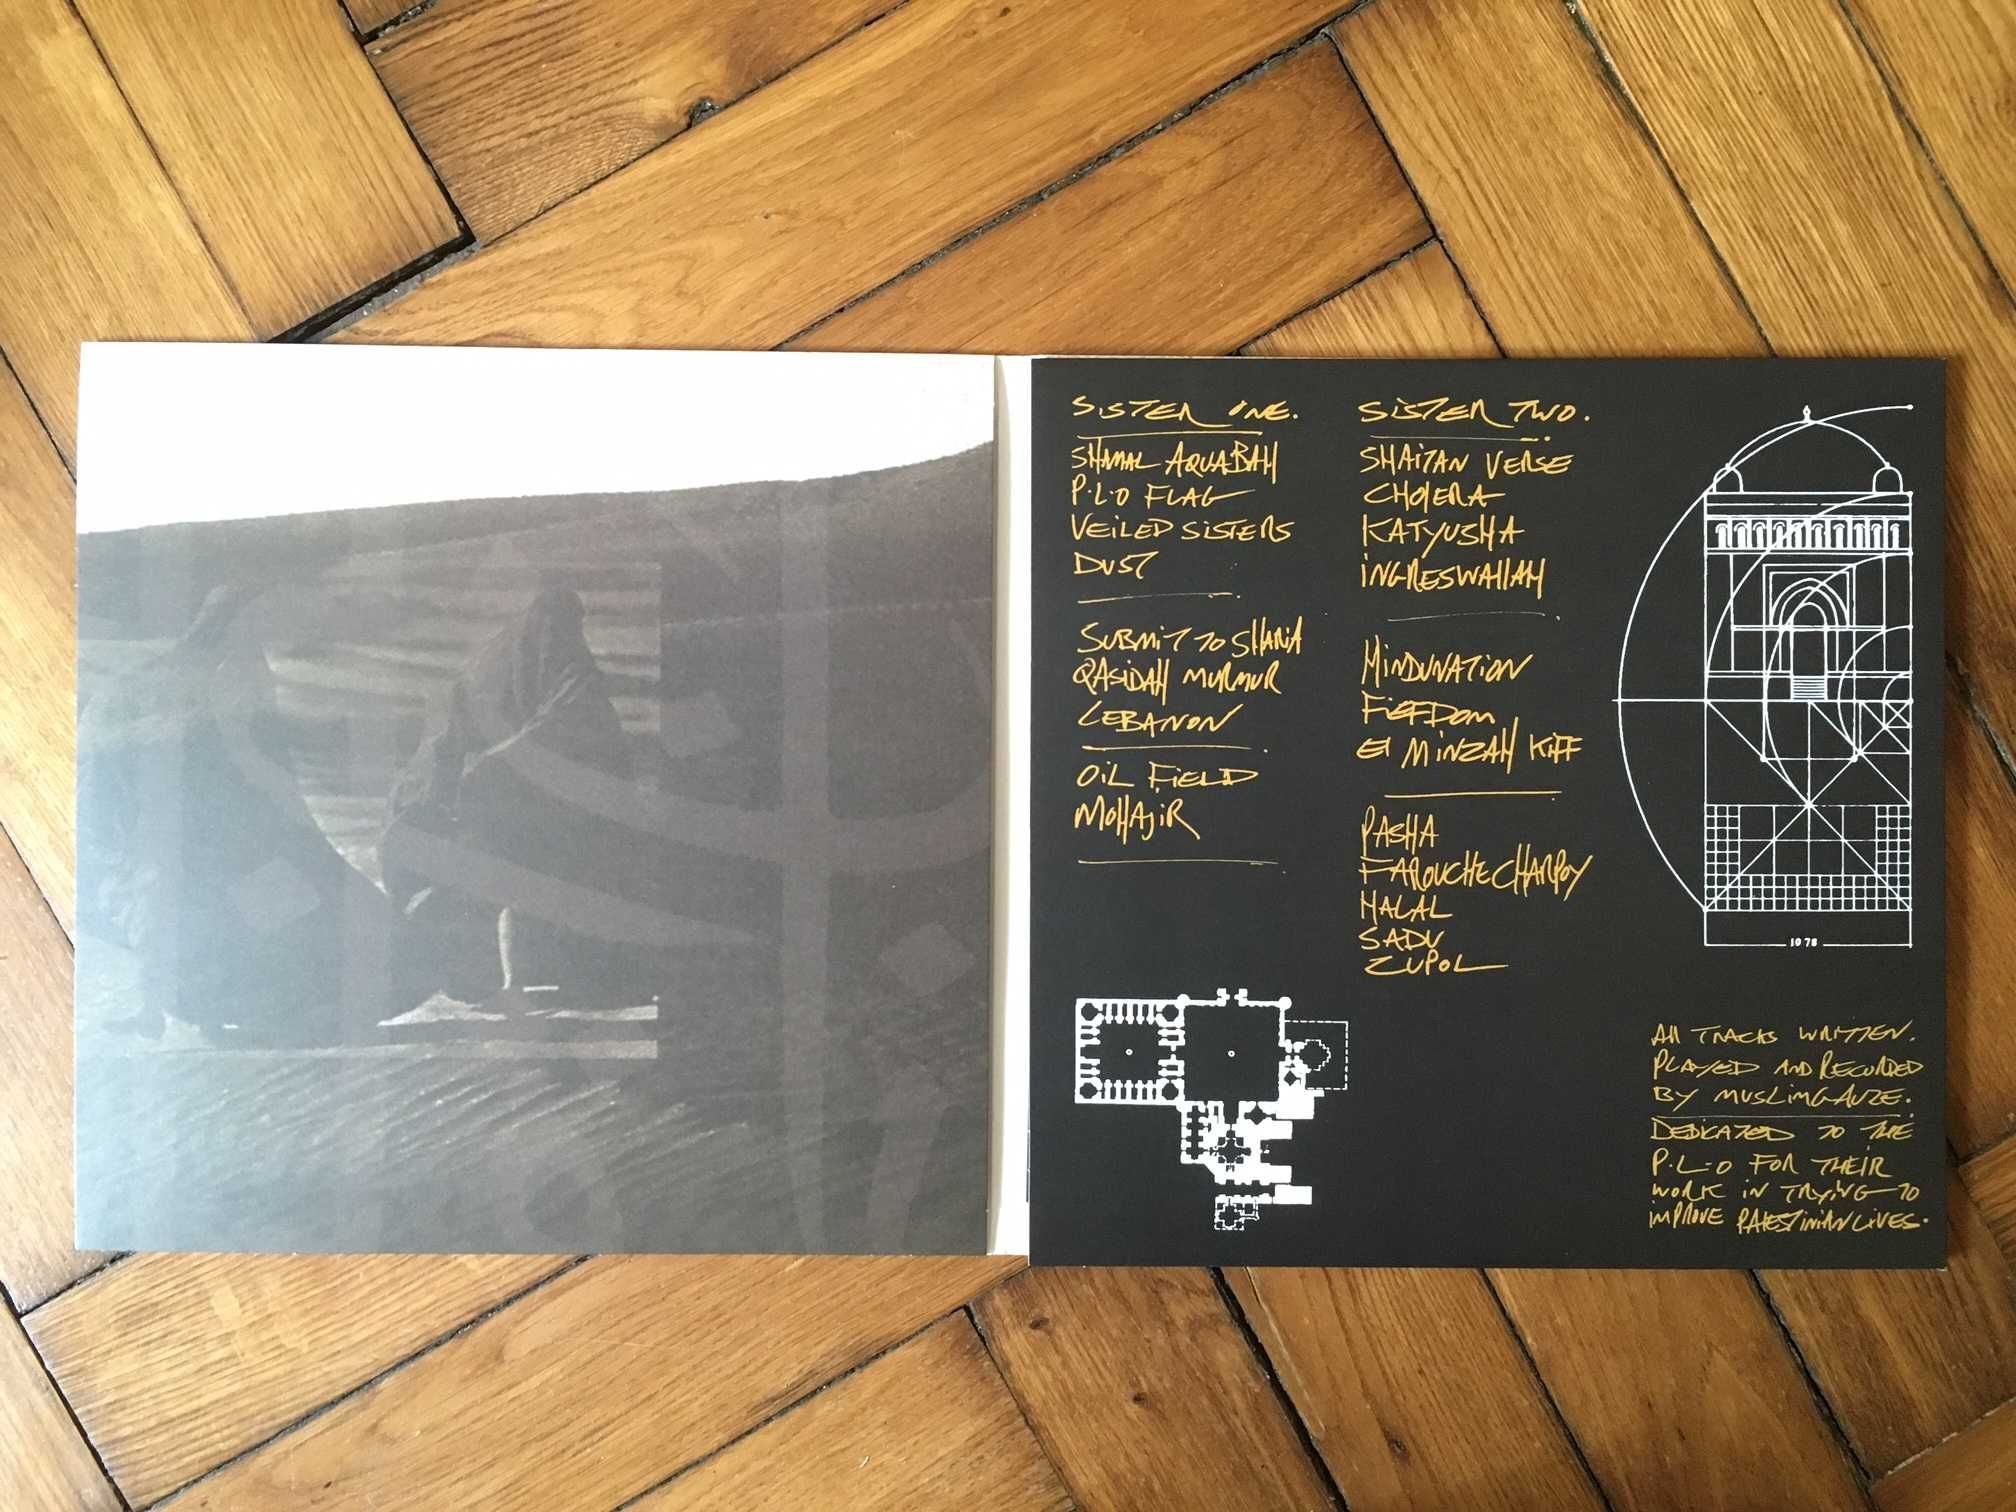 SISTER ONE.
SHAMAL AQUABAH
P.L.O FLAG
VEILED SISTERS
DUST
SUBMIT TO SHARIA
QASIDAH MURMUR
LEBANON
OIL FIELD
MOHAJIR
SISTER TWO.
SHAITAN VERSE
CHOLERA
KATYUSHA
INGRESWALLAH
MINDUNATION
FIEFDOM
EL MINZAH KIFF
PASHA
FAROUCHE CHARPOY
HALAL
SADU
ZUPOL
1078
ALL TRACKS WRITTEN.
PLAYED AND RECORDED
BY MUSLIMGAUZE.
DEDICATED TO THE
P.L.O FOR THEIR
WORK IN TRYING TO
IMPROVE PALESTINIAN LIVES.